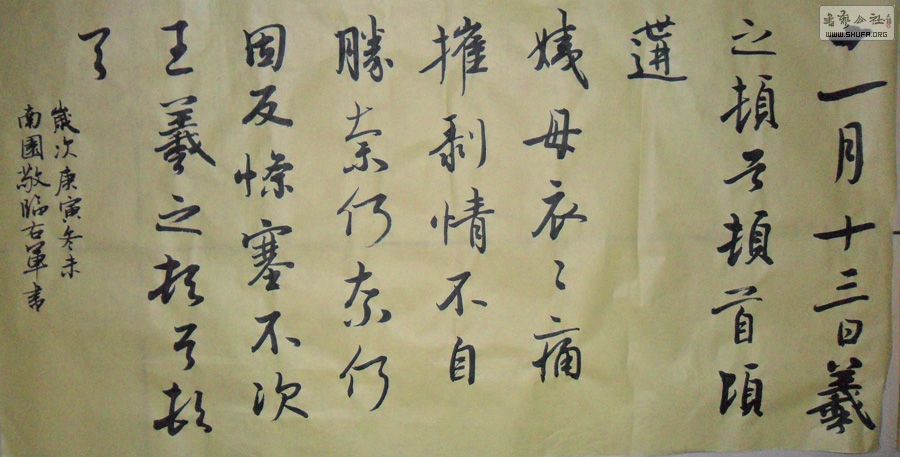 書藝公社
WWW.SHUFA.ORG
一月十三日羲
之頓首頓首頃
遘
姨母哀〻痛
摧剥情不自
勝奈何奈何
因反慘塞不次
王羲之頓首頓
首
歲次庚寅冬末
南園敬臨右軍書